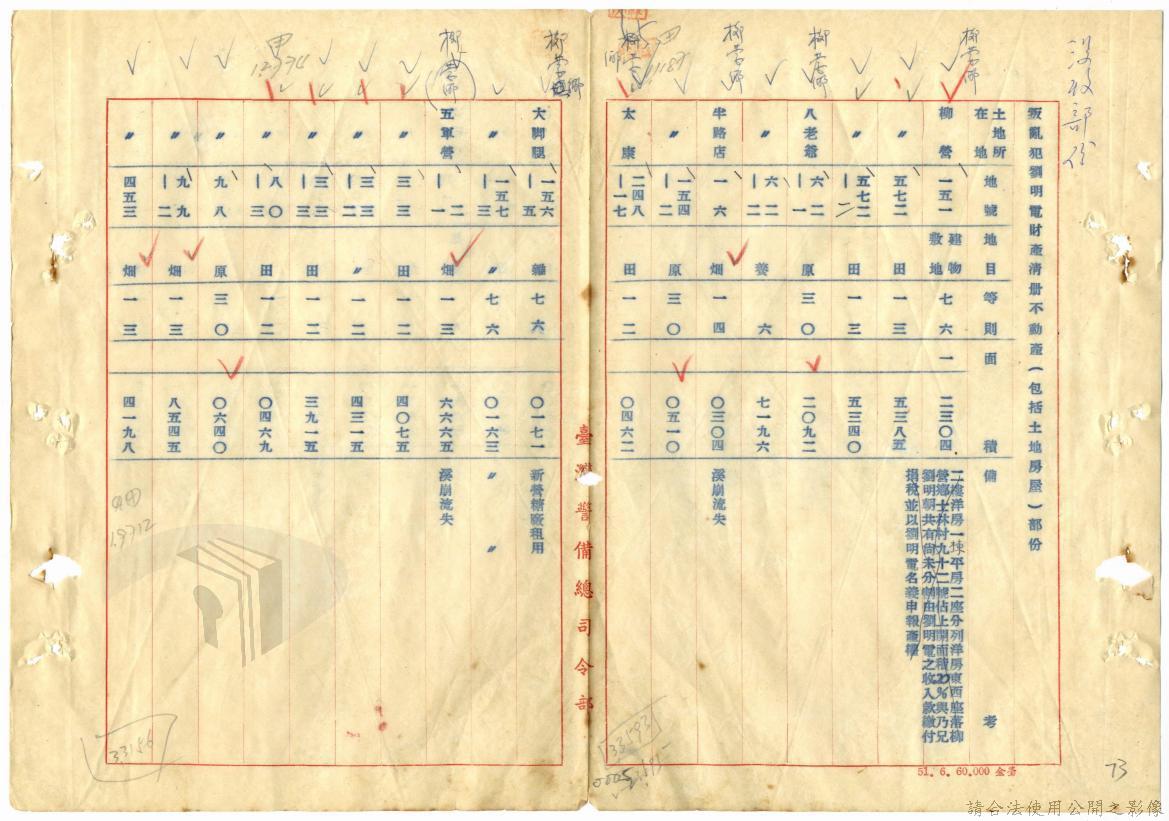 沒收部份
叛亂犯劉明電財產清册不動產(包括土地房屋)部份
土地所在地 地號 地目 等則 面積 備考
柳營 一五一 建物敷地 七六 一 二三〇四 二樓洋房一棟平房二座分列洋房東西座落柳
營鄉士林村九十二號佔上開面積20%與乃兄
劉明朝共有尚未分割由劉明電之收入款繳付
捐稅並以劉明電名義申報產權
〃 五七二 田 一三 五三八五
〃 五七二|二 田 一三 五三四〇
八老爺 六二|一 原 三〇 二〇九二
〃 六二|二 養 六 七一九六
半路店 一六 畑 一四 〇三〇四 溪崩流失
〃 一五四|二 原 三〇 〇五一〇
太康 二四八|一七 田 一二 〇四六二
大脚腿 一五六|五 雜 七六 〇一七一 新營糖廠租用
〃 一五七|三 〃 七六 〇一六三 〃 〃
五軍營 二|一 畑 一三 六六六五 溪崩流失
〃 三三 田 一二 四〇七五
〃 三三|二 〃 一二 四三一五
〃 三三|三 田 一二 三九一五
〃 八〇|三 田 一二 〇四六九
〃 九八 原 三〇 〇六四〇
〃 九九|二 畑 一三 八五四五
〃 四五三 畑 一三 四一九八
臺灣警備總司令部
柳營鄉
柳營鄉
柳營鄉
柳營鄉
33156
51. 6. 60.000
73
請合法使用公開之影像